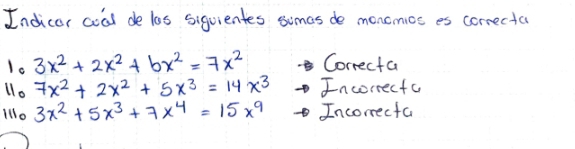 Indicar cuál de las siguientes sumas de monomios es correcta
I. 3x² + 2x² + 6x² = 7x² → Correcta
II. 7x² + 2x² + 5x³ = 14x³ → Incorrecta
III. 3x² + 5x³ + 7x⁴ = 15x⁹ → Incorrecta